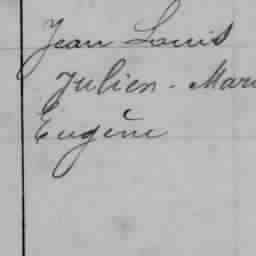 Jean Louis
Julien - Mari
Eugène